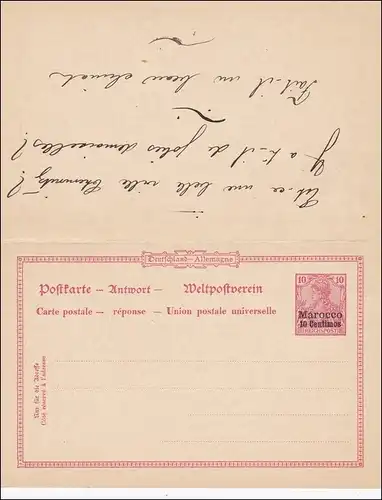 Est-ce une belle ville Chemnitz?
Y a-t-il de jolies demoiselles?
Fait-il un beau climat
Deutschland-Allemagne
Postkarte – Antwort – Weltpostverein
Carte postale – réponse – Union postale universelle
10 10
Marocco
10 Centimos
REICHSPOST
Nur für die Adresse
Côté réservé à l'adresse